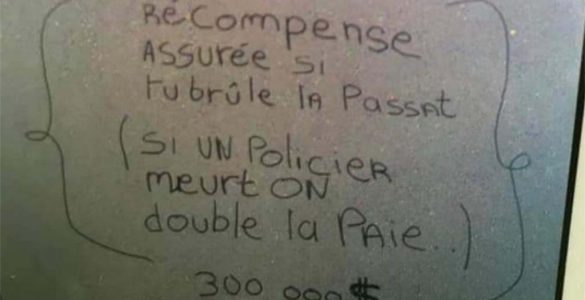 RÉCOMPENSE
ASSURÉE SI
tu brûle la Passat
(SI UN Policier
meurt ON
double la PAie..)
300 000$